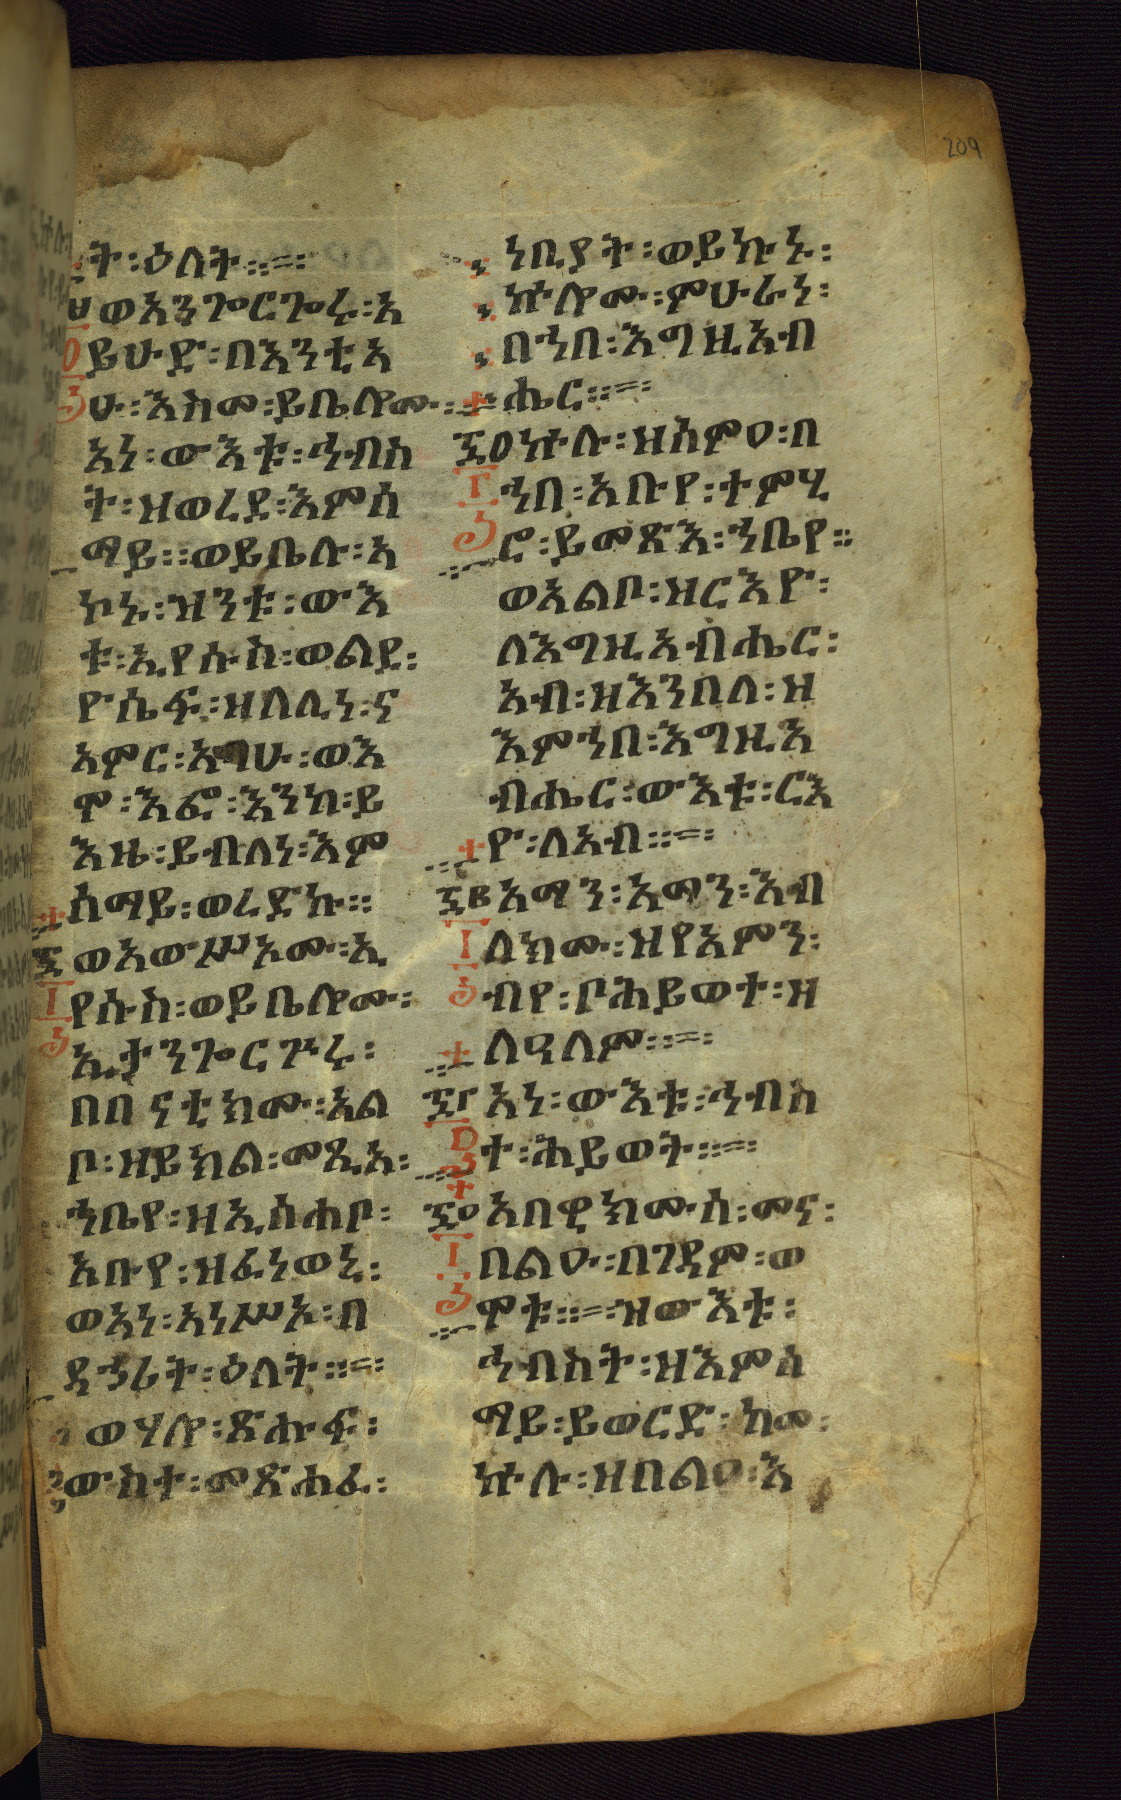 209
ት፡ዕለት።=፡
ወአንጐርጐሩ፡አ
ይሁድ፡በእንቲአ
ሁ፡እስመ፡ይቤሎሙ፡
አነ፡ውእቱ፡ኅብስ
ት፡ዝወረደ፡እምሰ
ማይ።ወይቤሉ፡አ
ኮኑ፡ዝንቱ፡ውእ
ቱ፡ኢየሱስ፡ወልደ፡
ዮሴፍ፡ዘለሊነ፡ና
አምር፡አባሁ፡ወእ
ሞ፡እፎ፡እንከ፡ይ
እዜ፡ይብለነ፡እም
ሰማይ፡ወረድኩ።
ወአውሥኦሙ፡ኢ
የሱስ፡ወይቤሎሙ፡
ኢታንጐርጕሩ፡
በበናቲክሙ፡አል
ቦ፡ዘይክል፡መጺአ፡
ኀቤየ፡ዘኢሰሐቦ፡
አቡየ፡ዝፈነወኒ፡
ወአነ፡አነሥኦ፡በ
ደኃሪት፡ዕለት።=፡
ወሃሎ፡ጽሑፍ፡
ውስተ፡መጽሐፈ፡
ነቢያት፡ወይኩኑ፡
ኵሎሙ፡ምሁራነ፡
በኀበ፡እግዚአብ
ሔር።=፡
፵፭ ኵሉ፡ዝሰምዐ፡በ
ኀበ፡አቡየ፡ተምሂ
ሮ፡ይመጽእ፡ኀቤየ።
ወአልቦ፡ዝርእዮ፡
ለእግዚአብሔር፡
አብ፡ዘእንበለ፡ዝ
እምኀበ፡እግዚእ
ብሔር፡ውእቱ፡ርእ
ዮ፡ለአብ።=፡
አማን፡አማን፡እብ
ለክሙ፡ዝየአምን፡
ብየ፡ቦሕይወተ፡ዘ
ለዓለም።=፡
አነ፡ውእቱ፡ኅብስ
ተ፡ሕይወት።=፡
አበዊክሙሰ፡መና፡
በልዑ፡በገዳም፡ወ
ሞቱ።=፡ዝውእቱ፡
ኅብስት፡ዘእምሰ
ማይ፡ይወርድ፡ከመ፡
ኵሉ፡ዘበልዐ፡እ